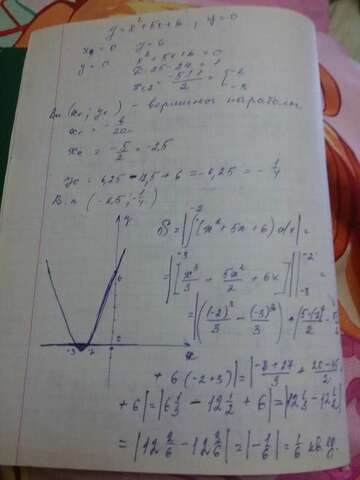 y = x² + 5x + 6, y = 0
x = 0 y = 6
y = 0 x² + 5x + 6 = 0
D = 25 - 24 = 1
x₁,₂ = (-5±1)/2 = [-2
-3
В.п (x₀; y₀) - вершина параболы
x₀ = -b/2a
x₀ = -5/2 = -2,5
y₀ = 6,25 - 12,5 + 6 = -0,25 = -1/4
В.п (-2,5; -1/4)
y
6
-3 -2 0 x
S = |∫₋₃⁻² (x² + 5x + 6) dx| =
= |[x³/3 + 5x²/2 + 6x]|₋₃⁻²| =
= |((-2)³/3 - (-3)³/3) +
+ 6 (-2+3)| = |(-8+27)/3 + (20-45)/2
+ 6| = |6 1/3 - 12 1/2 + 6| = |12 1/3 - 12 1/2|
= |12 2/6 - 12 3/6| = |-1/6| = 1/6 кв. ед.